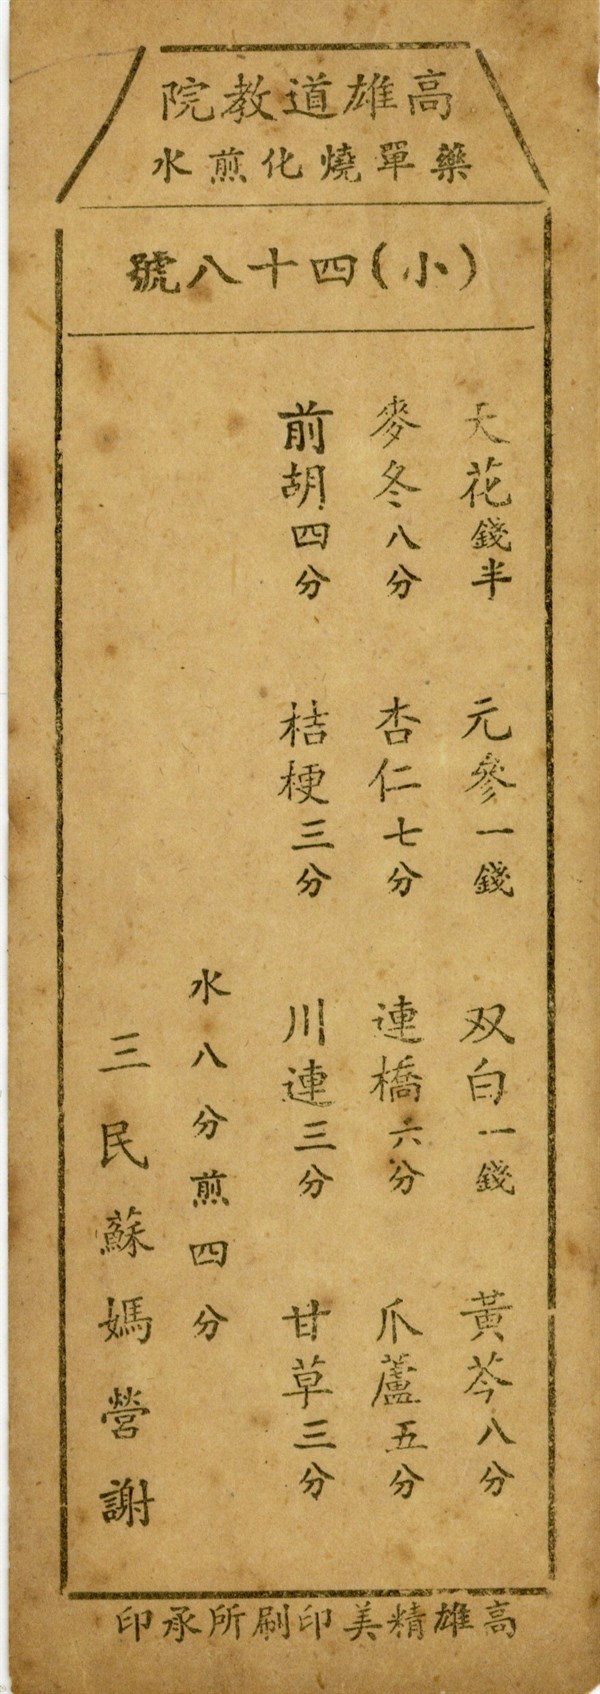 高雄道教院
藥單燒化煎水
(小)四十八號
天花錢半 元參一錢 双白一錢 黃芩八分
麥冬八分 杏仁七分 連橋六分 爪蘆五分
前胡四分 桔梗三分 川連三分 甘草三分
水八分煎四分
三民蘇媽營謝
高雄精美印刷所承印